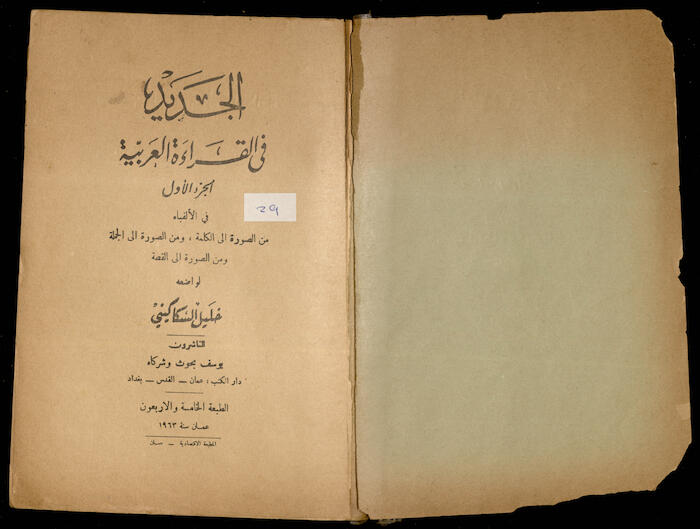 الجَديد
في القراءة العربية
الجزء الأول
في الألفباء
من الصورة الى الكلمة ، ومن الصورة الى الجملة
ومن الصورة الى القصة
لواضعه
خليل السكاكيني
الناشرون
يوسف بحوث وشركاه
دار الكتب : عمان — القدس — بغداد
الطبعة الخامسة والاربعون
عمان سنة ١٩٦٣
المطبعة الاقتصادية —